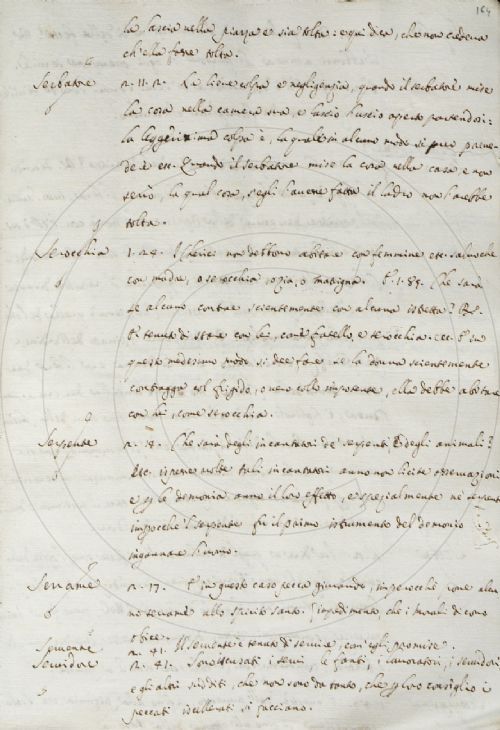 164
la lascia nella piazza e sia tolta: e qui dica, che non cadeva
ch'ela fosse tolta.
Serbatore n. 11. 2. La lieve colpa e negligenzia, quando il serbatore mise
la cosa nella camera sua, e lasciò l'uscio aperto partendosi:
la leggerissima colpa è, la quale in alcuno modo si può
etc. Quando il serbatore mise la cosa nella casa e non
serrò, la qual cosa, s'egli l'avesse fatta il ladro non l'arebbe
tolta.
Serocchia 1. n. 4. I cherici non debbono abitare con femmine etc. salvoche
con madre, o serocchia, o matrigna. 1. 85. Che sarà
se alcuno contrae scientemente con alcuna
È tenuto di stare con lei, come fratello, e serocchia. ecc. E in
questo medesimo modo si dee fare se la donna scientemente
contragga col frigido, overo collo impotente, ella debbe abitare
con lui, come serocchia.
Serpente n. 18. Che sarà degli incantatori de' serpenti, e degli animali?
molte tali incantatori anno non licite osservazioni
e le demonia anno il loro effetto, e spezialmente ne' serpenti
impocchè 'l serpente fu il primo istrumento del demonio
ingannare l'uomo.
Serrame n. 17. E in questo caso pecca giurando, imperocchè pone alcuno
serrame allo spirito santo. impedimento, che i dicono
obice.
Servente n. 41. Il servente è tenuto di servire, com'egli promise.
Servidore n. 41. i servi, i fanti, i lavoratori, i servidori
e gli altri sudditi, che non sono da tanto, che loro consiglio i
peccati si facciano.